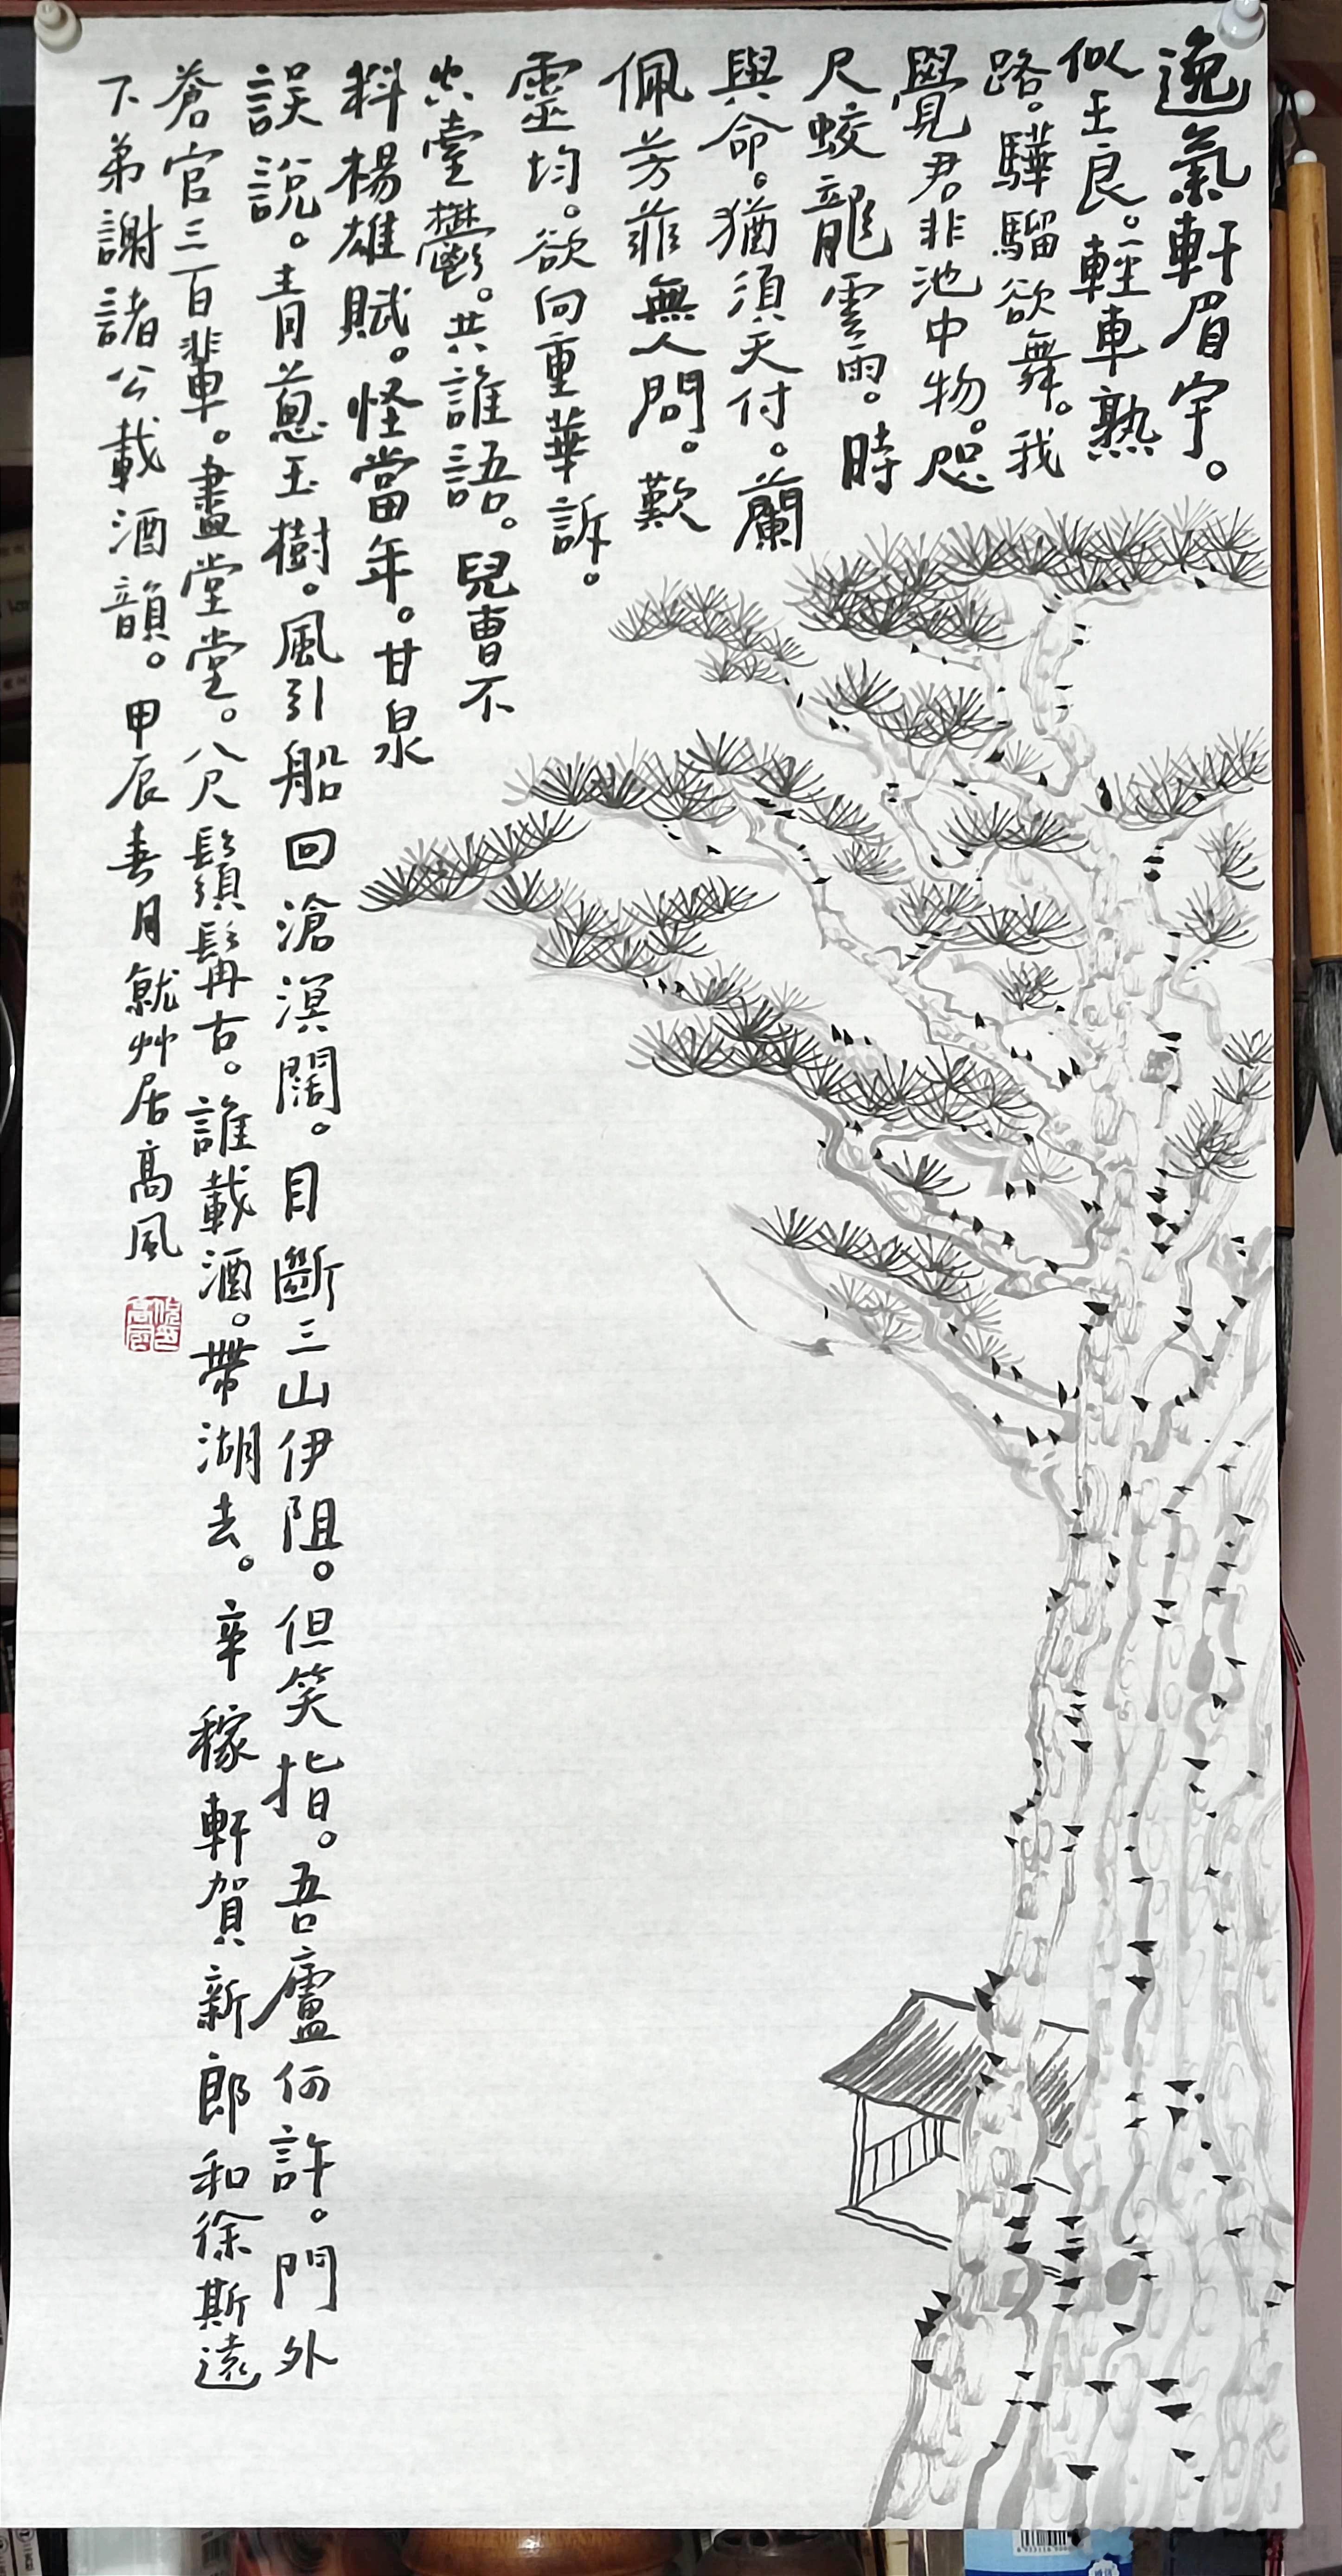 逸氣軒眉宇。
似王良。輕車熟
路。驊騮欲舞。我
覺君非池中物。咫
尺蛟龍雲雨。時
與命。猶須天付。蘭
佩芳菲無人問。歎
靈均。欲向重華訴。
空壹鬱。共誰語。兒曹不
料楊雄賦。怪當年。甘泉
誤說。青蔥玉樹。風引船回滄溟闊。目斷三山伊阻。但笑指。吾廬何許。門外
蒼官三百輩。盡堂堂。八尺鬚髯古。誰載酒。帶湖去。辛稼軒賀新郎和徐斯遠
下第謝諸公載酒韻。甲辰春月就艸居高風